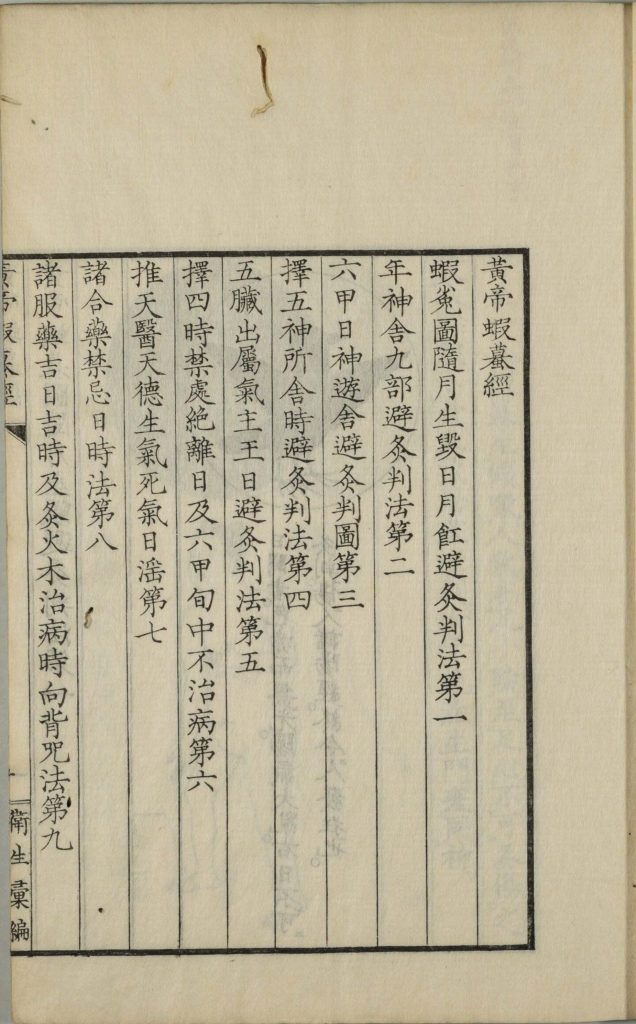 黃帝蝦蟇經
蝦兎圖隨月生毀日月䖧避灸判法第一
年神舍九部避灸判法第二
六甲日神遊舍避灸判圖第三
擇五神所舍時避灸判法第四
五臟出屬氣主王日避灸判法第五
擇四時禁處絶離日及六甲旬中不治病第六
推天醫天德生氣死氣日淫第七
諸合藥禁忌日時法第八
諸服藥吉日吉時及灸火木治病時向背咒法第九
黃帝蝦蟇經
一
衛生彙編